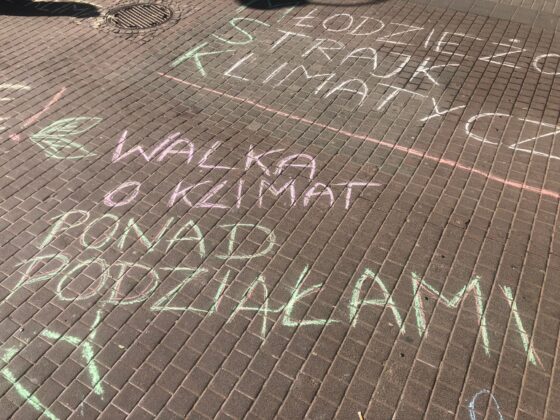 ŁODZIEŻO
STRAJK
KLIMATYCZ
WALKA
O KLIMAT
PONAD
PODZIAŁAMI